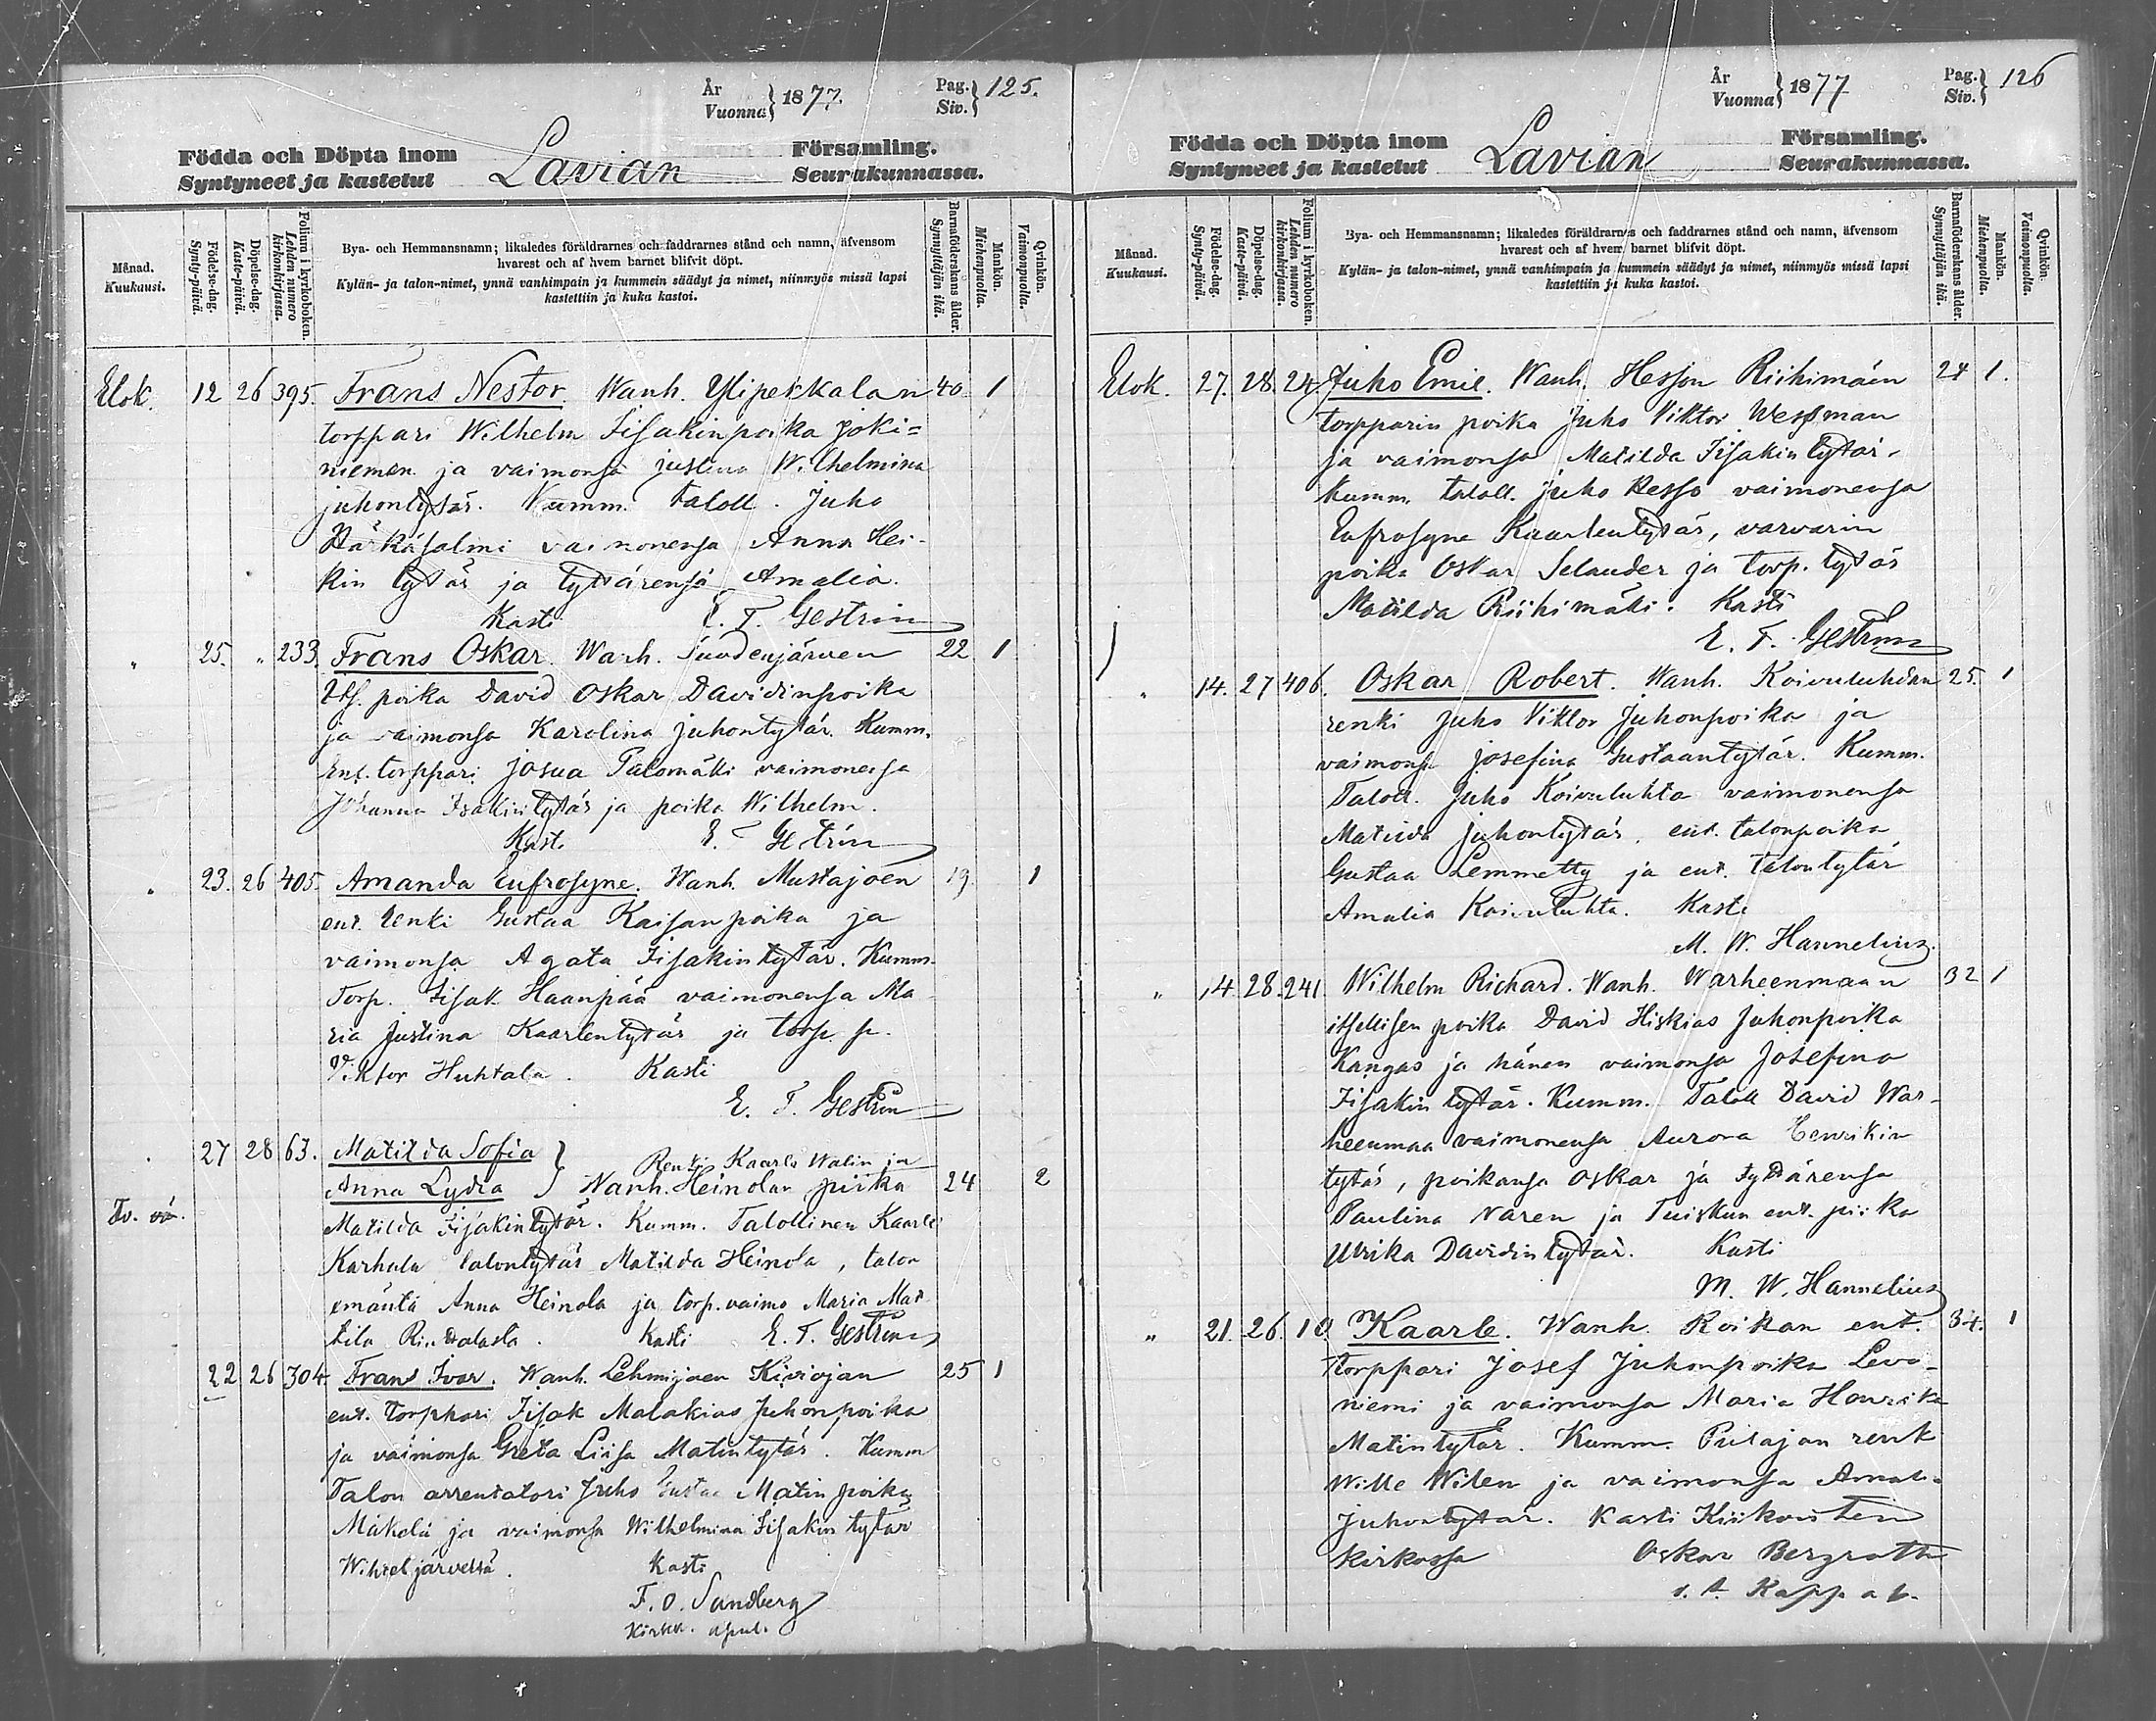 År
Vuonna } 1877.
Pag.
Siv. } 125.
Födda och Döpta inom
Syntyneet ja kastetut
Lavian
Församling.
Seurakunnassa.
Månad.
Kuukausi.
Födelse-dag.
Synty-päivä.
Döpelse-dag.
Kaste-päivä.
Folium i kyrkoboken.
Lehden numero kirkonkirjassa.
Bya- och Hemmansnamn; likaledes föräldrarnes och faddrarnes stånd och namn, äfvensom
hvarest och af hvem barnet blifvit döpt.
Kylän- ja talon-nimet, ynnä vanhimpain ja kummein säädyt ja nimet, niinmyös missä lapsi
kastettiin ja kuka kastoi.
Barnaföderskans ålder.
Synnyttäjän ikä.
Mankön.
Miehenpuolia.
Qvinkön.
Vaimonpuolia.
Elok. 12 26 395. Frans Nestor. Wanh. Ylipekkalan 40 1
torppari Wilhelm Iisakinpoika Joki=
niemen ja vaimonsa Justina Wilhelmina
Juhontytär. Kumm. taloll. Juho
Härkäsalmi vaimonensa Anna Hei-
kin tytär ja tyttärensä Amalia.
Kasti E. T. Gestrin
" 25. " 233. Frans Oskar. Wanh. Suodenjärven 22 1
poika David Oskar Davidinpoika
ja vaimonsa Karolina Juhontytär. Kumm.
ent. torppari Josua Palomäki vaimonensa
Johanna Isakintytär ja poika Wilhelm.
Kasti E. T. Gestrin
" 23. 26 405. Amanda Eufrosyne. Wanh. Mustajoen 19. 1
ent. renki Gustaa Kaisanpoika ja
vaimonsa Agata Iisakintytär. Kumm.
Torp. Iisak Haanpää vaimonensa Ma
ria Justina Kaarlentytär ja torp. p.
Viktor Huhtala. Kasti
E. T. Gestrin
27 28 63. Matilda Sofia } Renki Kaarlo Walin ja
Anna Lydia } Wanh. Heinolan piika 24 2
Matilda Iisakintytär. Kumm. Talollinen Kaarle
Karhula talontytär Matilda Heinola, talon
emäntä Anna Heinola ja torp. vaimo Maria Mat
tila Kasti E. T. Gestrin
22 26 304. Frans Ivar. Wanh. Lehmijoen Kiviojan 25 1
ent. torppari Iisak Malakias Juhonpoika
ja vaimonsa Greta Liisa Matintytär. Kumm
Talon arrentatori Juho Gustaa Matinpoika
Mäkelä ja vaimonsa Wilhelmina Iisakin tytär
Wihteljärveltä. Kasti
F. O. Sandberg
Kirkh. apul.
År
Vuonna } 1877
Pag.
Siv. } 126
Födda och Döpta inom
Syntyneet ja kastetut
Lavian
Församling.
Seurakunnassa.
Månad.
Kuukausi.
Födelse-dag.
Synty-päivä.
Döpelse-dag.
Kaste-päivä.
Folium i kyrkoboken.
Lehden numero kirkonkirjassa.
Bya- och Hemmansnamn; likaledes föräldrarnes och faddrarnes stånd och namn, äfvensom
hvarest och af hvem barnet blifvit döpt.
Kylän- ja talon-nimet, ynnä vanhimpain ja kummein säädyt ja nimet, niinmyös missä lapsi
kastettiin ja kuka kastoi.
Barnaföderskans ålder.
Synnyttäjän ikä.
Mankön.
Miehenpuolia.
Qvinkön.
Vaimonpuolia.
Elok. 27. 28. 24. Juho Emil. Wanh. Hesson Riihimäen 24 1.
torpparin poika Juho Viktor Wessman
ja vaimonsa Matilda Iisakin tytär.
Kumm. taloll. Juho Hesso vaimonensa
Eufrosyne Kaarlentytär, varvarin
poika Oskar Selander ja torp. tytär
Matilda Riihimäki. Kasti
E. T. Gestrin
" 14. 27 406. Oskar Robert. Wanh. Koivuluhdan 25. 1
renki Juho Viktor Juhonpoika ja
vaimonsa Josefina Gustaantytär. Kumm.
Taloll. Juho Koivuluhta vaimonensa
Matilda Juhontytär, ent. talonpoika
Gustaa Lemmetty ja ent. talontytär
Amalia Koivuluhta. Kasti
M. W. Hannelius.
" 14. 28. 241 Wilhelm Richard. Wanh. Warheenmaan 32 1
itsellisen poika David Hiskias Juhonpoika
Kangas ja hänen vaimonsa Josefina
Iisakin tytär. Kumm. Taloll David War-
heenmaa vaimonensa Aurora Henrikin
tytär, poikansa Oskar ja tyttärensä
Paulina Naren ja Tuiskun ent. piika
Ulrika Davidin tytär. Kasti
M. W. Hannelius
" 21. 26. 10 Kaarle. Wanh. Roikan ent. 34. 1
torppari Josef Juhonpoika Leva-
niemi ja vaimonsa Maria Henrika
Matintytär. Kumm. renk
Wille Wilen ja vaimonsa Amali
Juhontytär. Kasti Kiikoisten
kirkossa Oskar Bergroth
v. t. Kapp. ap.